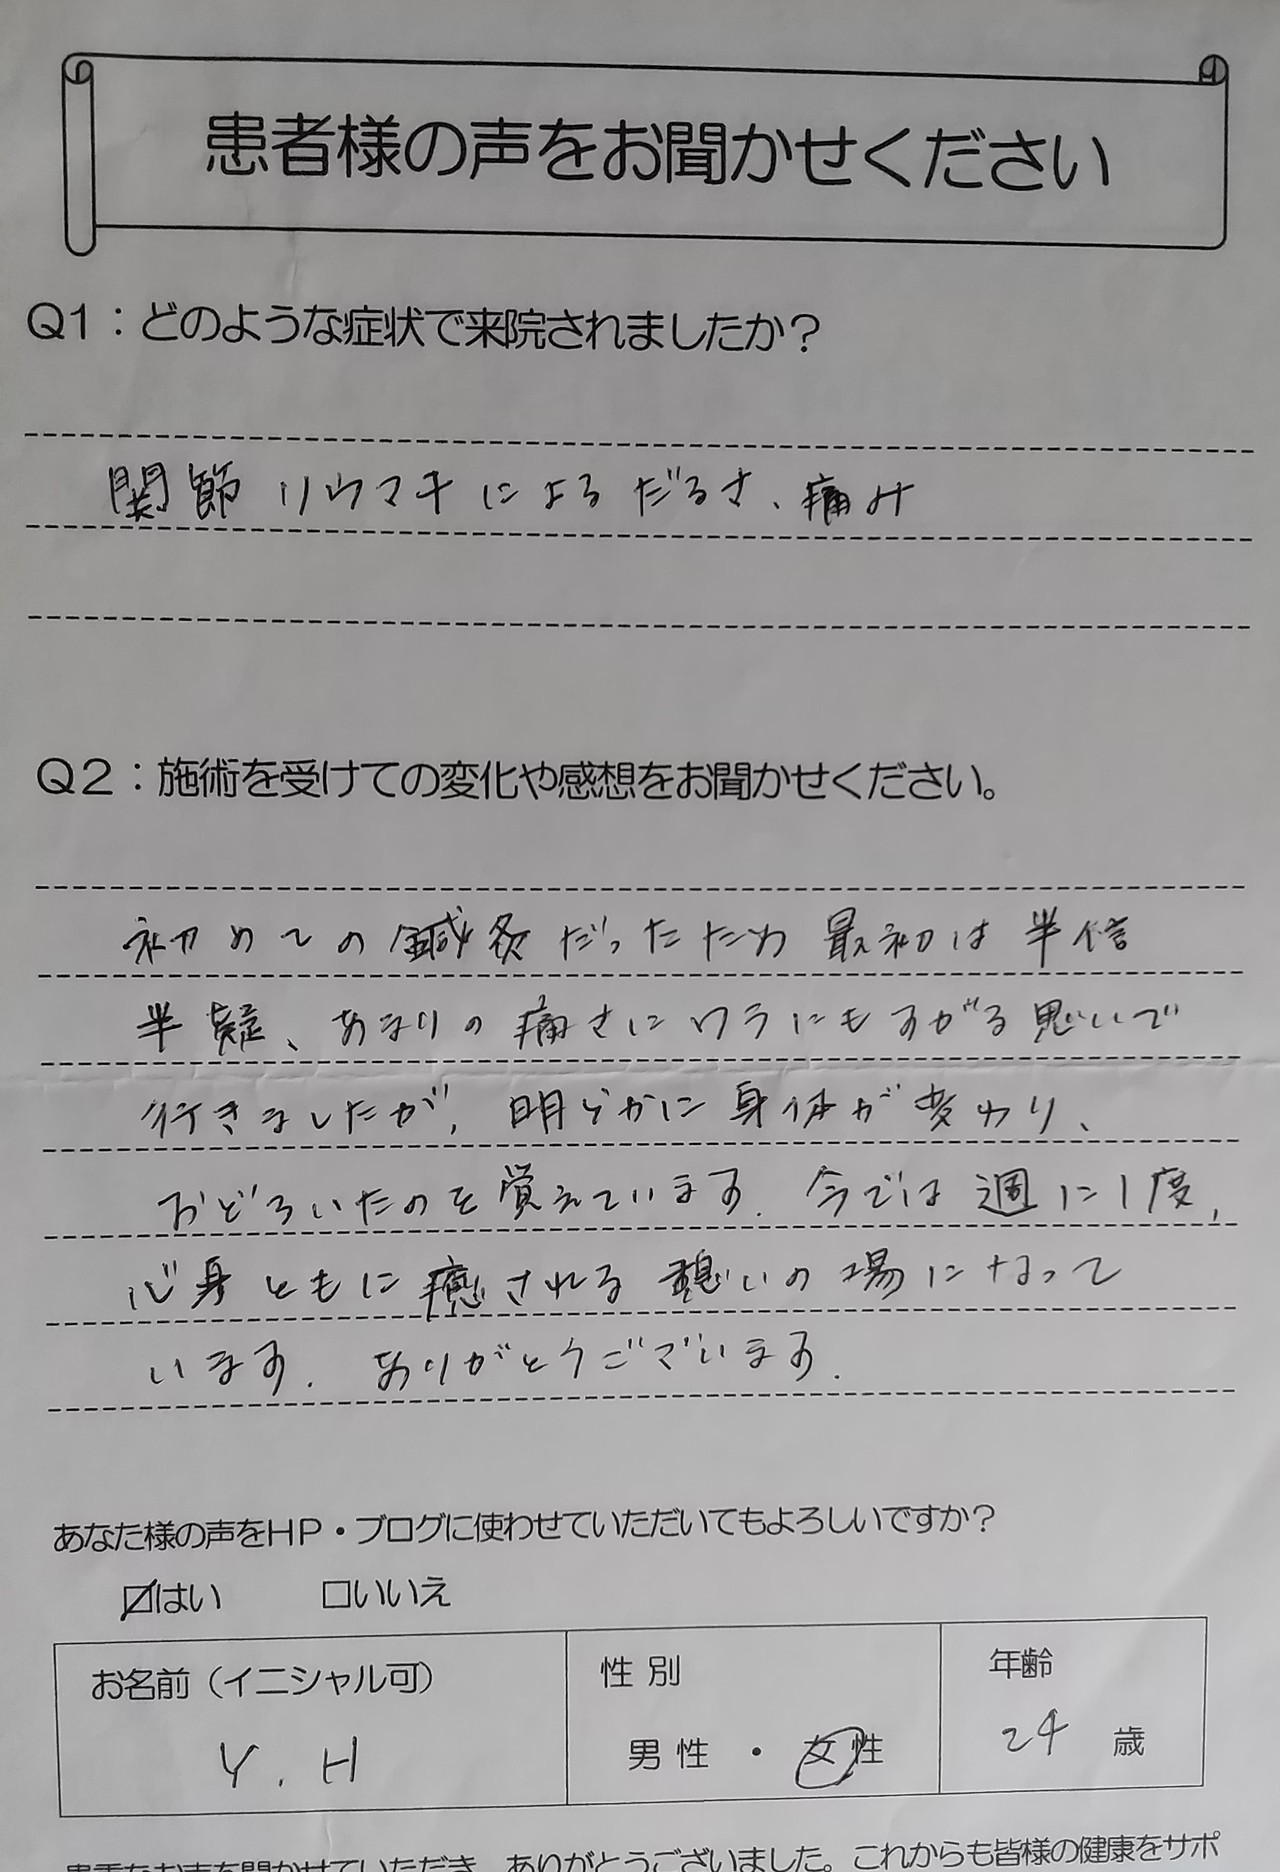 患者様の声をお聞かせください
Q1：どのような症状で来院されましたか？
関節リウマチによるだるさ、痛み
Q2：施術を受けての変化や感想をお聞かせください。
初めての鍼灸だったため最初は半信
半疑、あまりの痛さにワラにもすがる思いで
行きましたが、明らかに身体が変わり、
おどろいたのを覚えています。今では週に1度、
心身ともに癒される憩いの場になって
います。ありがとうございます。
あなた様の声をHP・ブログに使わせていただいてもよろしいですか？
☑はい　□いいえ
お名前（イニシャル可）　性別　年齢
Y.H　男性・女性　24歳
貴重なお声を聞かせていただき、ありがとうございました。これからも皆様の健康をサポ